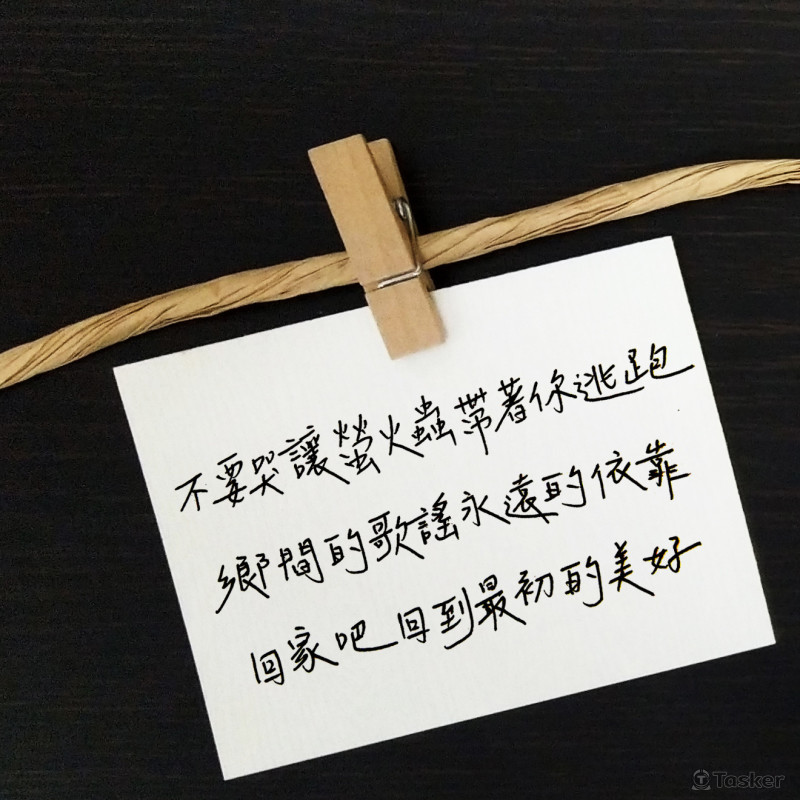 不要哭讓螢火蟲帶著你逃跑
鄉間的歌謠永遠的依靠
回家吧回到最初的美好
Tasker